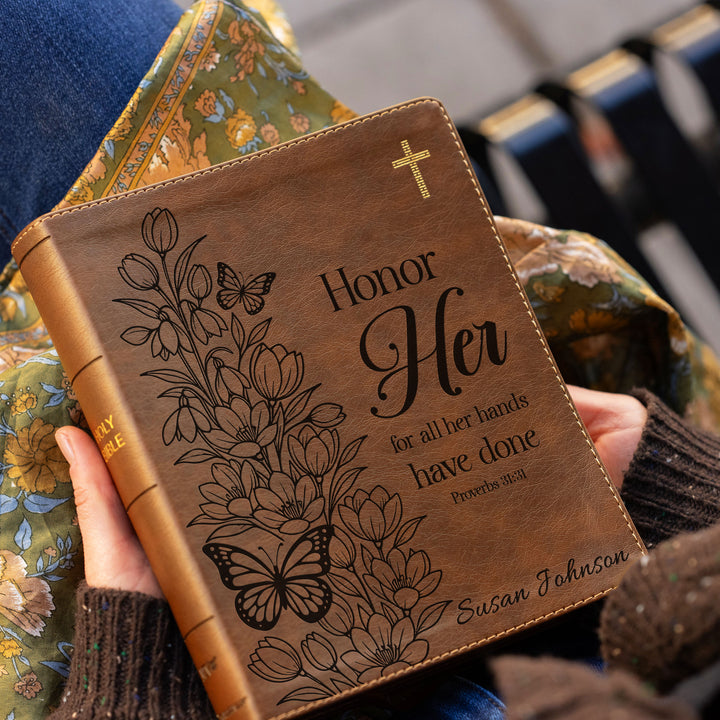 Honor
Her
for all her hands
have done
Proverbs 31:31
Susan Johnson
HOLY
BIBLE